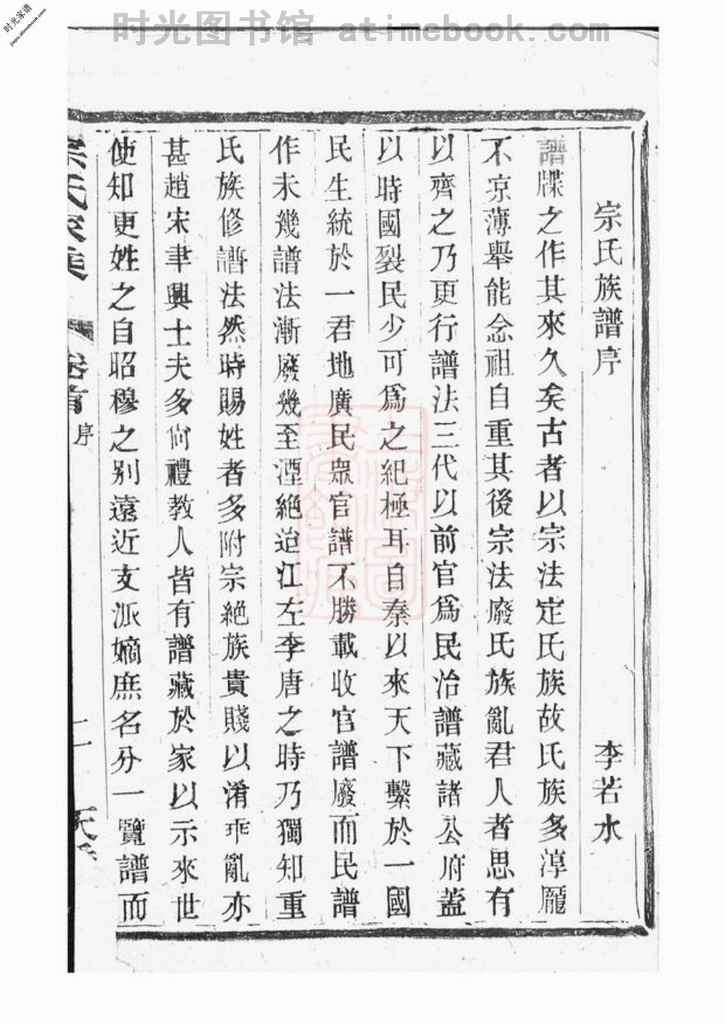 时光图书馆 atimebook.com
时光家谱
宗氏族譜序 李若水
譜牒之作其來久矣古者以宗法定氏族故氏族多淳龐
不凉薄舉能念祖自重其後宗法廢氏族亂君人者思有
以齊之乃更行譜法三代以前官爲民治譜藏諸公府葢
以時國裂民少可爲之紀極耳自秦以來天下繫於一國
民生統於一君地廣民眾官譜不勝載收官譜廢而民譜
作未幾譜法漸廢幾至湮絶迨江左李唐之時乃獨知重
氏族修譜法然時賜姓者多附宗絶族貴賤以淆乖亂亦
甚趙宋聿興士夫多尙禮教人皆有譜藏於家以示來世
使知更姓之自昭穆之别遠近支派嫡庶名分一覽譜而
宗氏家乘 卷首 序 二